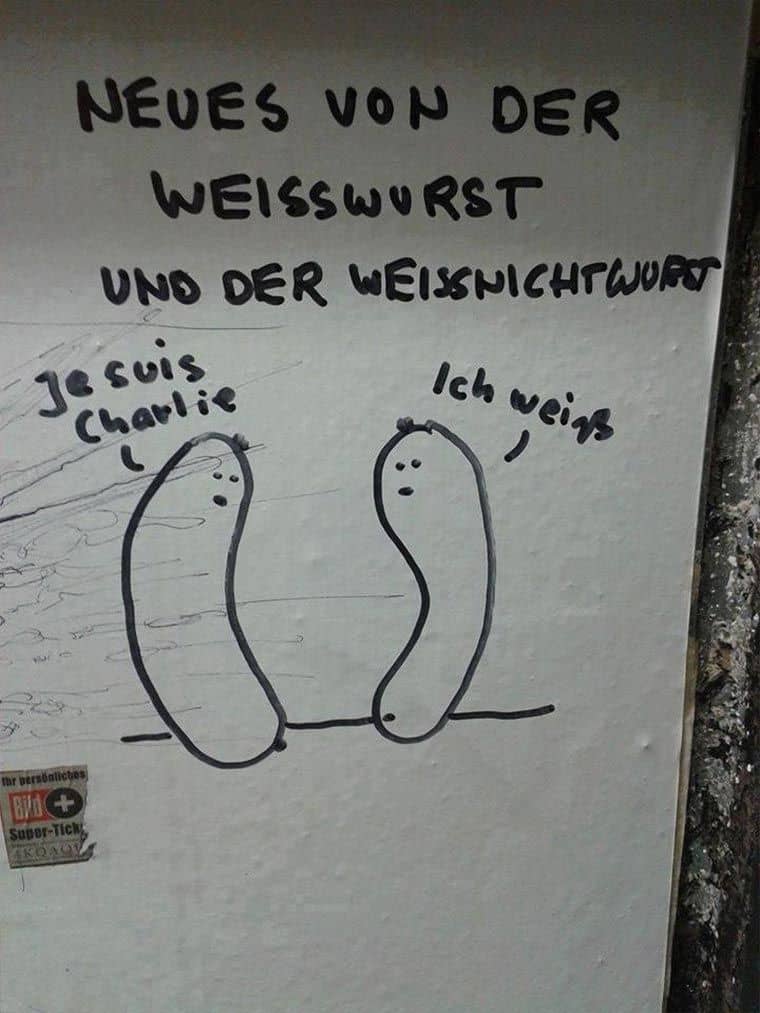 NEUES VON DER
WEISSWURST
UND DER WEISSNICHTWURST
Je suis
Charlie
Ich weiß
Ihr persönliches
Bild +
Super-Tick